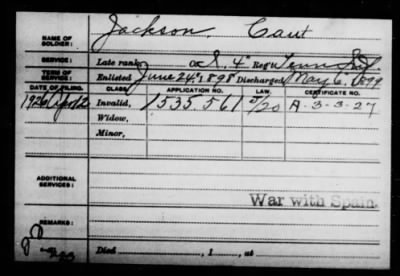 NAME OF SOLDIER: Jackson, Caut
SERVICE: Late rank, Co. I, 4" Reg't Tenn. Inf.
TERM OF SERVICE: Enlisted June 24", 1898 Discharged May 6, 1899
DATE OF FILING. CLASS. APPLICATION NO. LAW. CERTIFICATE NO.
1926 Apr 12 Invalid, 1535,561 5/20 A-3-3-27
Widow,
Minor,
ADDITIONAL SERVICES:
War with Spain.
REMARKS:
Died , 1 , at